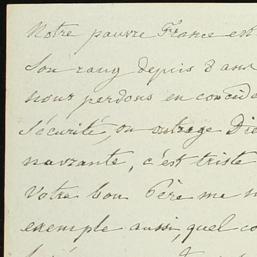 Notre pauvre France est
son rang depuis 8 ans
nous perdons en considé
sécurité, on outrage Die
navrante, c'est triste
Votre bon Père me
exemple aussi, quel co